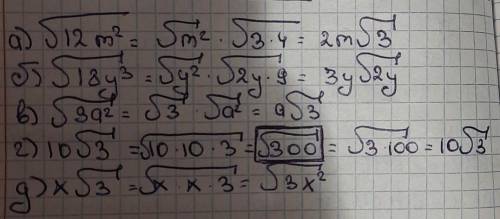 а) √12m² = √m² · √3·4 = 2m√3
б) √18y³ = √y² · √2y·9 = 3y√2y
в) √3a² = √3 · √a² = a√3
г) 10√3 = √10·10·3 = √300 = √3·100 = 10√3
д) x√3 = √x·x·3 = √3x²